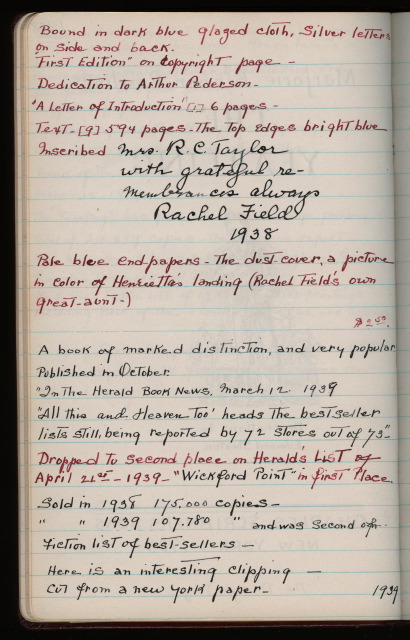 Bound in dark blue glazed cloth, Silver letters
on side and back.
"First Edition" on Copyright page -
Dedication to Arthur Pederson.
"A Letter of Introduction" [7] 6 pages -
Text - [9] 594 pages - The Top edges bright blue
Inscribed Mrs. R. C. Taylor
with grateful re-
membrances always
Rachel Field
1938
Pale blue endpapers - The dust cover, a picture
in color of Henrietta's landing (Rachel Field's own
great-aunt-)
$2.50.
A book of marked distinction, and very popular
Published in October.
"In The Herald Book News, March 12. 1939
"All this and Heaven Too' heads the best seller
lists still, being reported by 72 stores out of 73"-
Dropped to second place on Herald's List of
April 21st - 1939 - "Wickford Point" in first Place.
Sold in 1938 175.000 copies -
" " 1939 107.780 " and was second on
Fiction list of best-sellers -
Here is an interesting clipping -
Cut from a new york paper - 1939